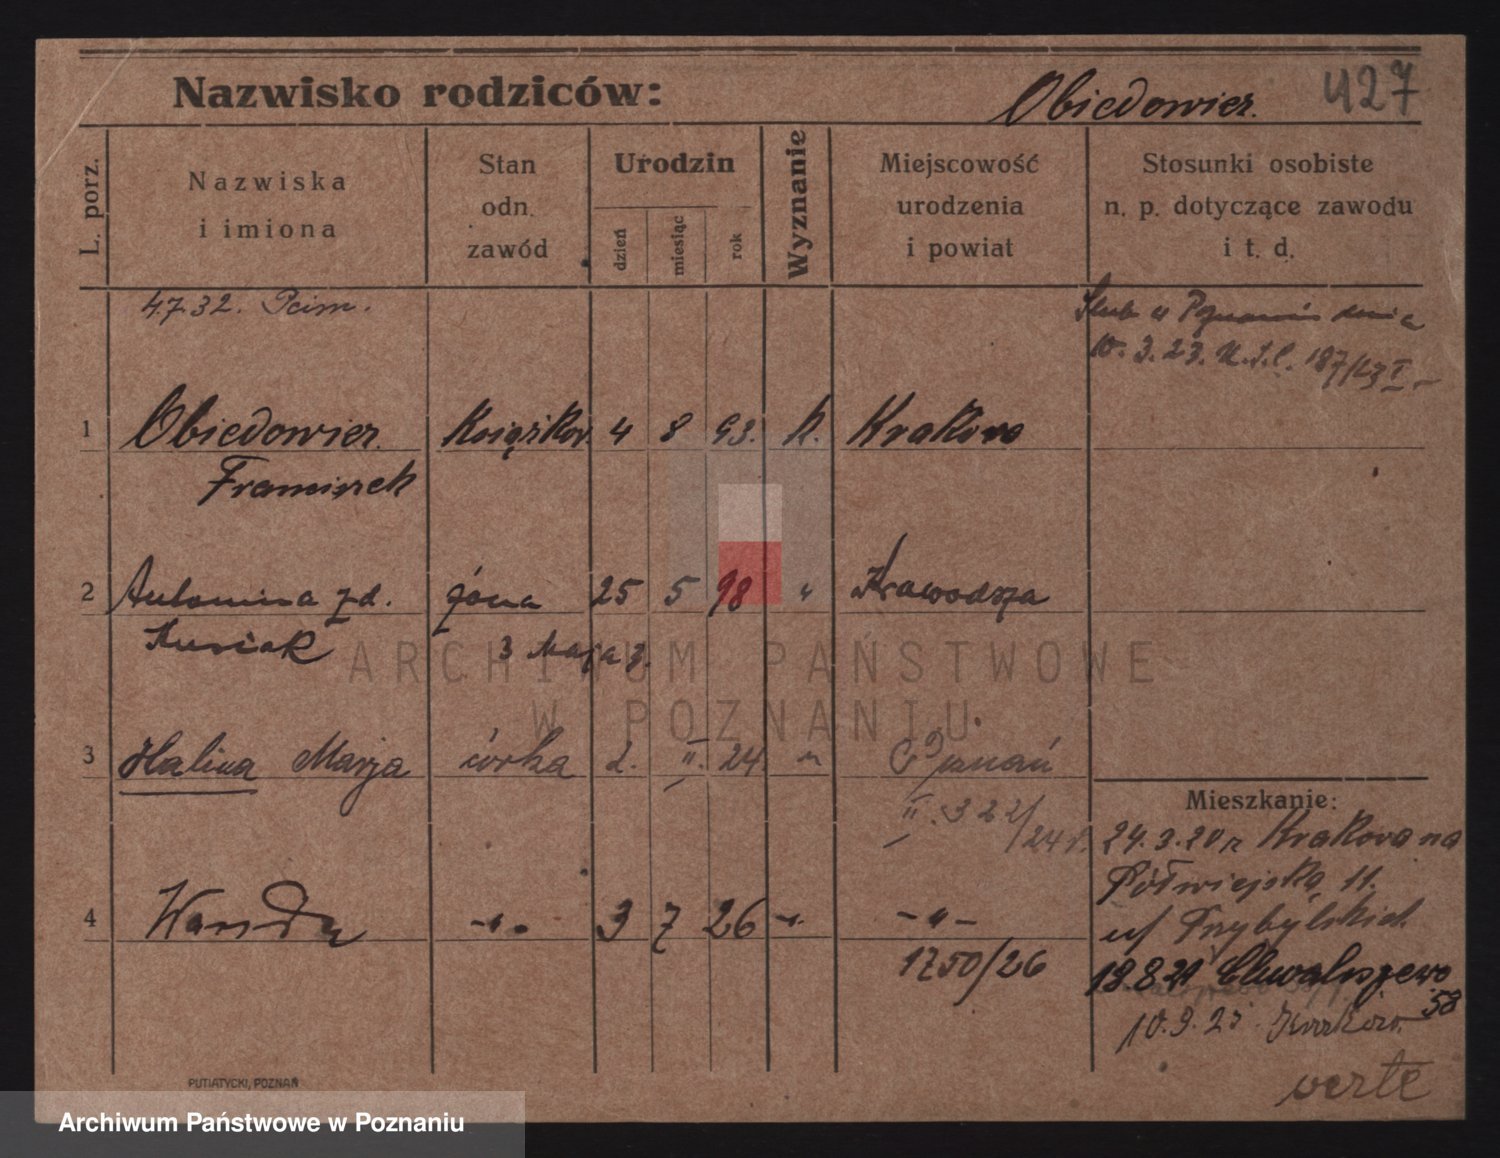 Nazwisko rodziców: Obiedowier. 427
L. porz.
Nazwiska i imiona
Stan odn. zawód
Urodzin
dzień miesiąc rok
Wyznanie
Miejscowość urodzenia i powiat
Stosunki osobiste n. p. dotyczące zawodu i t. d.
4732.
Ślub w Poznaniu dnia
10. 3. 23. U.S.C. 187/23 I
1 Obiedowier. 4 8 93. k. Kraków
Franciszek
2 Antonina zd. żona 25 5 98 " Krawodrza
Kusiak 3 Maja 3.
3 Halina Marja córka 2. II. 24 " Poznań
II. 322/24 r.
4 Wanda -"- 3 7 26 -"- -"-
1750/26
Mieszkanie:
24.3.20 z Krakowa na
Półwiejską 11.
u/
18.8.21 Chwaliszewo 58
10.9.25
verte
PUTIATYCKI, POZNAŃ
ARCHIWUM PAŃSTWOWE
W POZNANIU
Archiwum Państwowe w Poznaniu